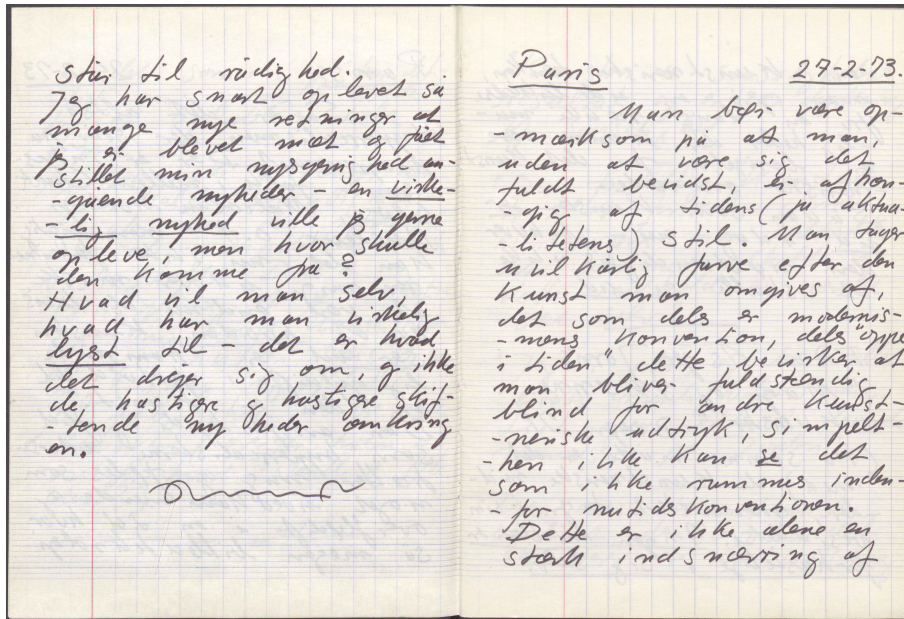 står til rådighed.
Jeg har snart oplevet så
mange nye retninger at
jeg er blevet mæt og fået
stillet min nysgerrighed an-
-gående nyheder - en virke-
-lig nyhed ville jeg gerne
opleve, men hvor skulle
den komme fra?
Hvad vil man selv,
hvad har man virkelig
lyst til - det er hvad
det drejer sig om, og ikke
de hastigere og hastigere skif-
-tende nyheder omkring
en.
Paris 27-2-73.
Man bør være op-
-mærksom på at man,
uden at være sig det
fuldt bevidst, er afhæn-
-gig af tidens (ja aktua-
-litetens) stil. Man tager
uvilkårlig farve efter den
kunst man omgives af,
det som dels er modernis-
-mens konvention, dels "oppe
i tiden" dette bevirker at
man bliver fuldstændig
blind for andre kunst-
-neriske udtryk, simpelt-
-hen ikke kan se det
som ikke rummes inden-
-for nutidskonventionen.
Dette er ikke alene en
stærk indsnævring af